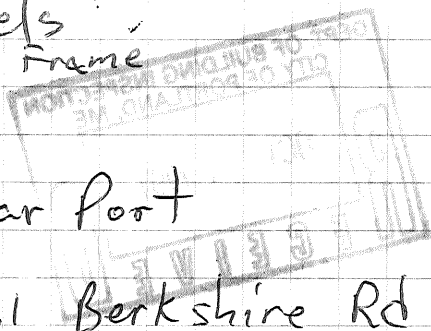 els
Frame
DEPT. OF BUILDING INSPECTION
CITY OF PORTLAND, ME
RECEIVED
ar Port
Berkshire Rd